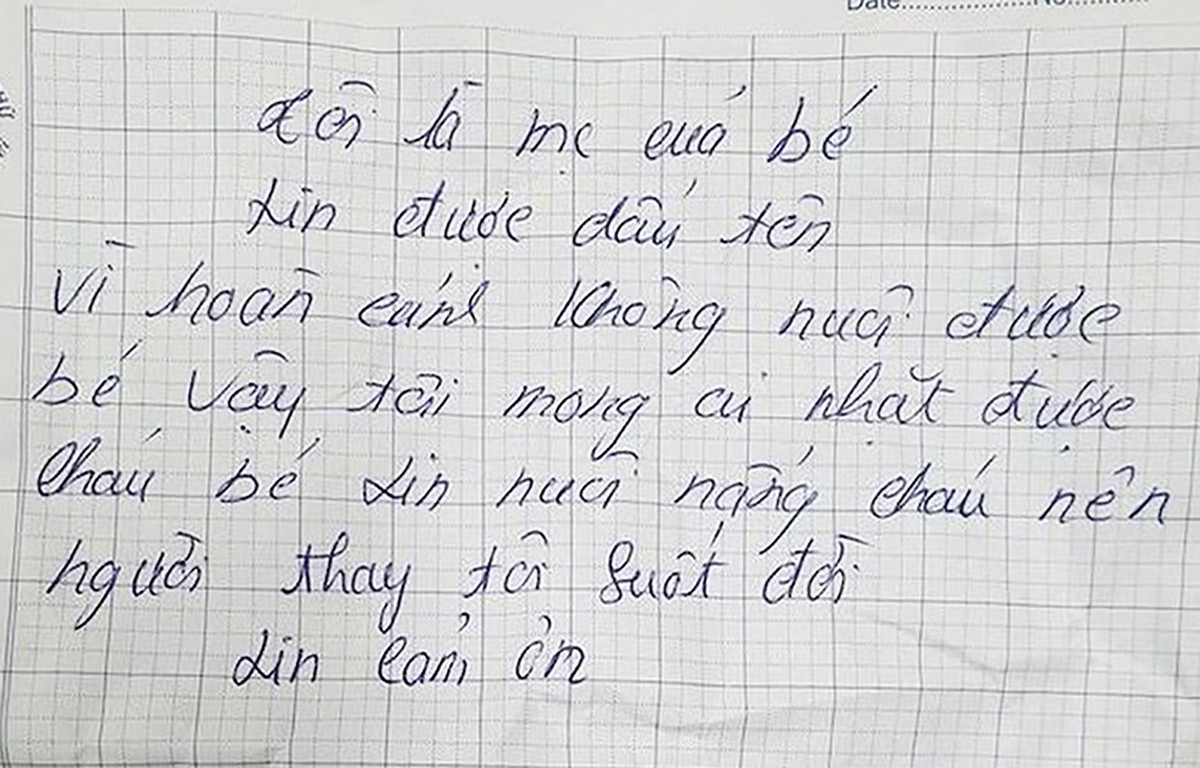 Date....................No............
Tôi là mẹ cuả bé
xin được dấu tên
vì hoàn cảnh không nuôi được
bé vậy tôi mong ai nhặt được
cháu bé xin nuôi nấng cháu nên
người thay tôi suốt đời
xin cảm ơn